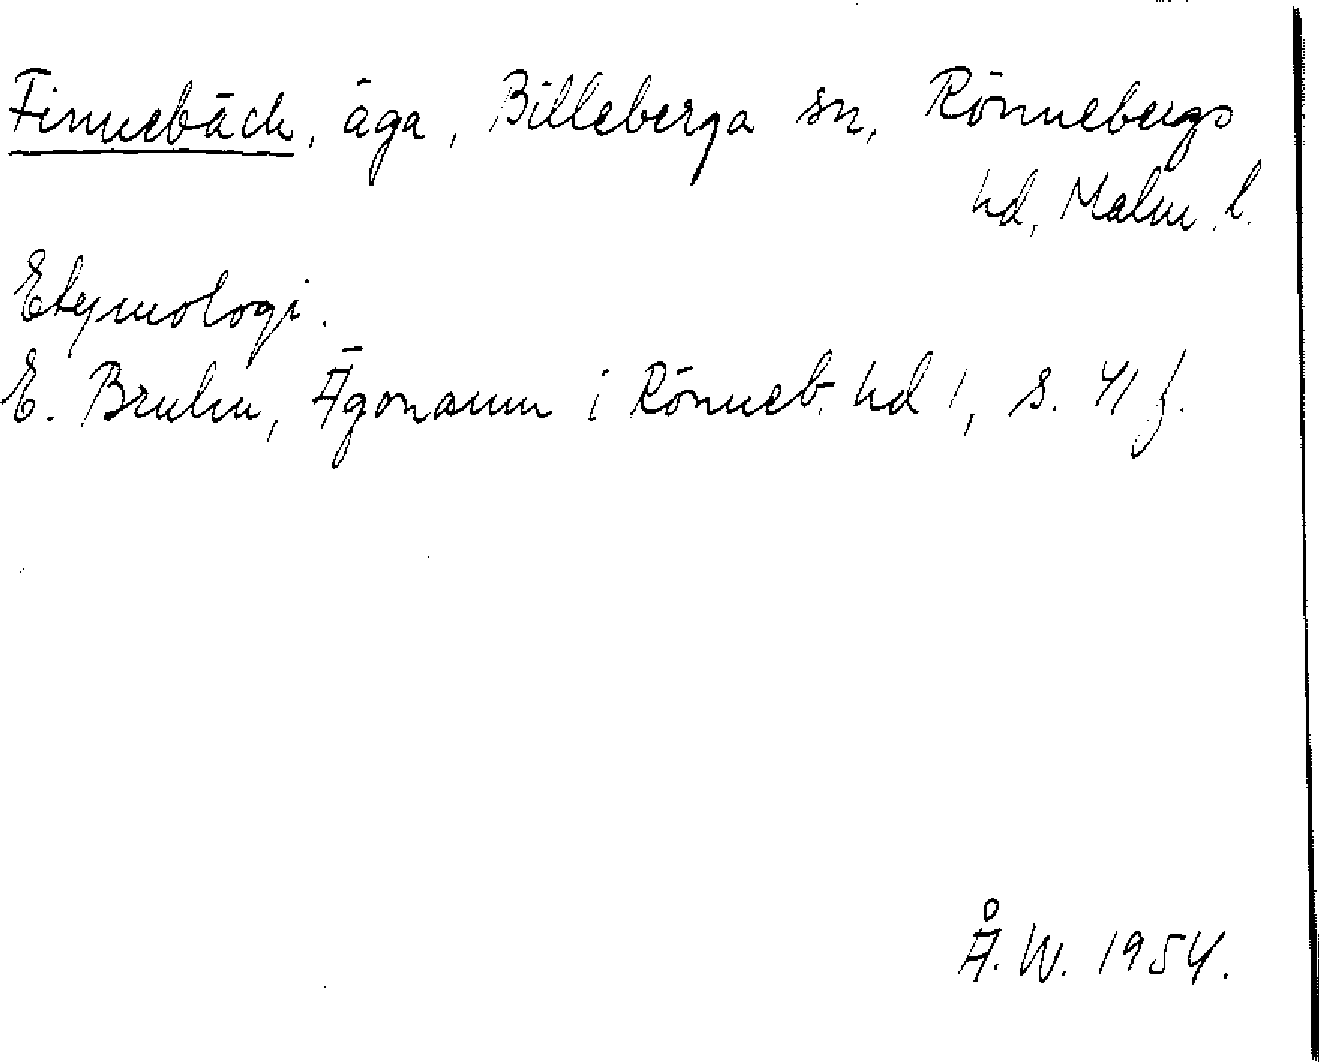 Finnebäck, äga, Billeberga sn, Rönnebergs
hd, Malm. l.
Etymologi.
E. Bruhn, Ägonamn i Rönneb. hd 1, s. 41 f.
Å. W. 1954.